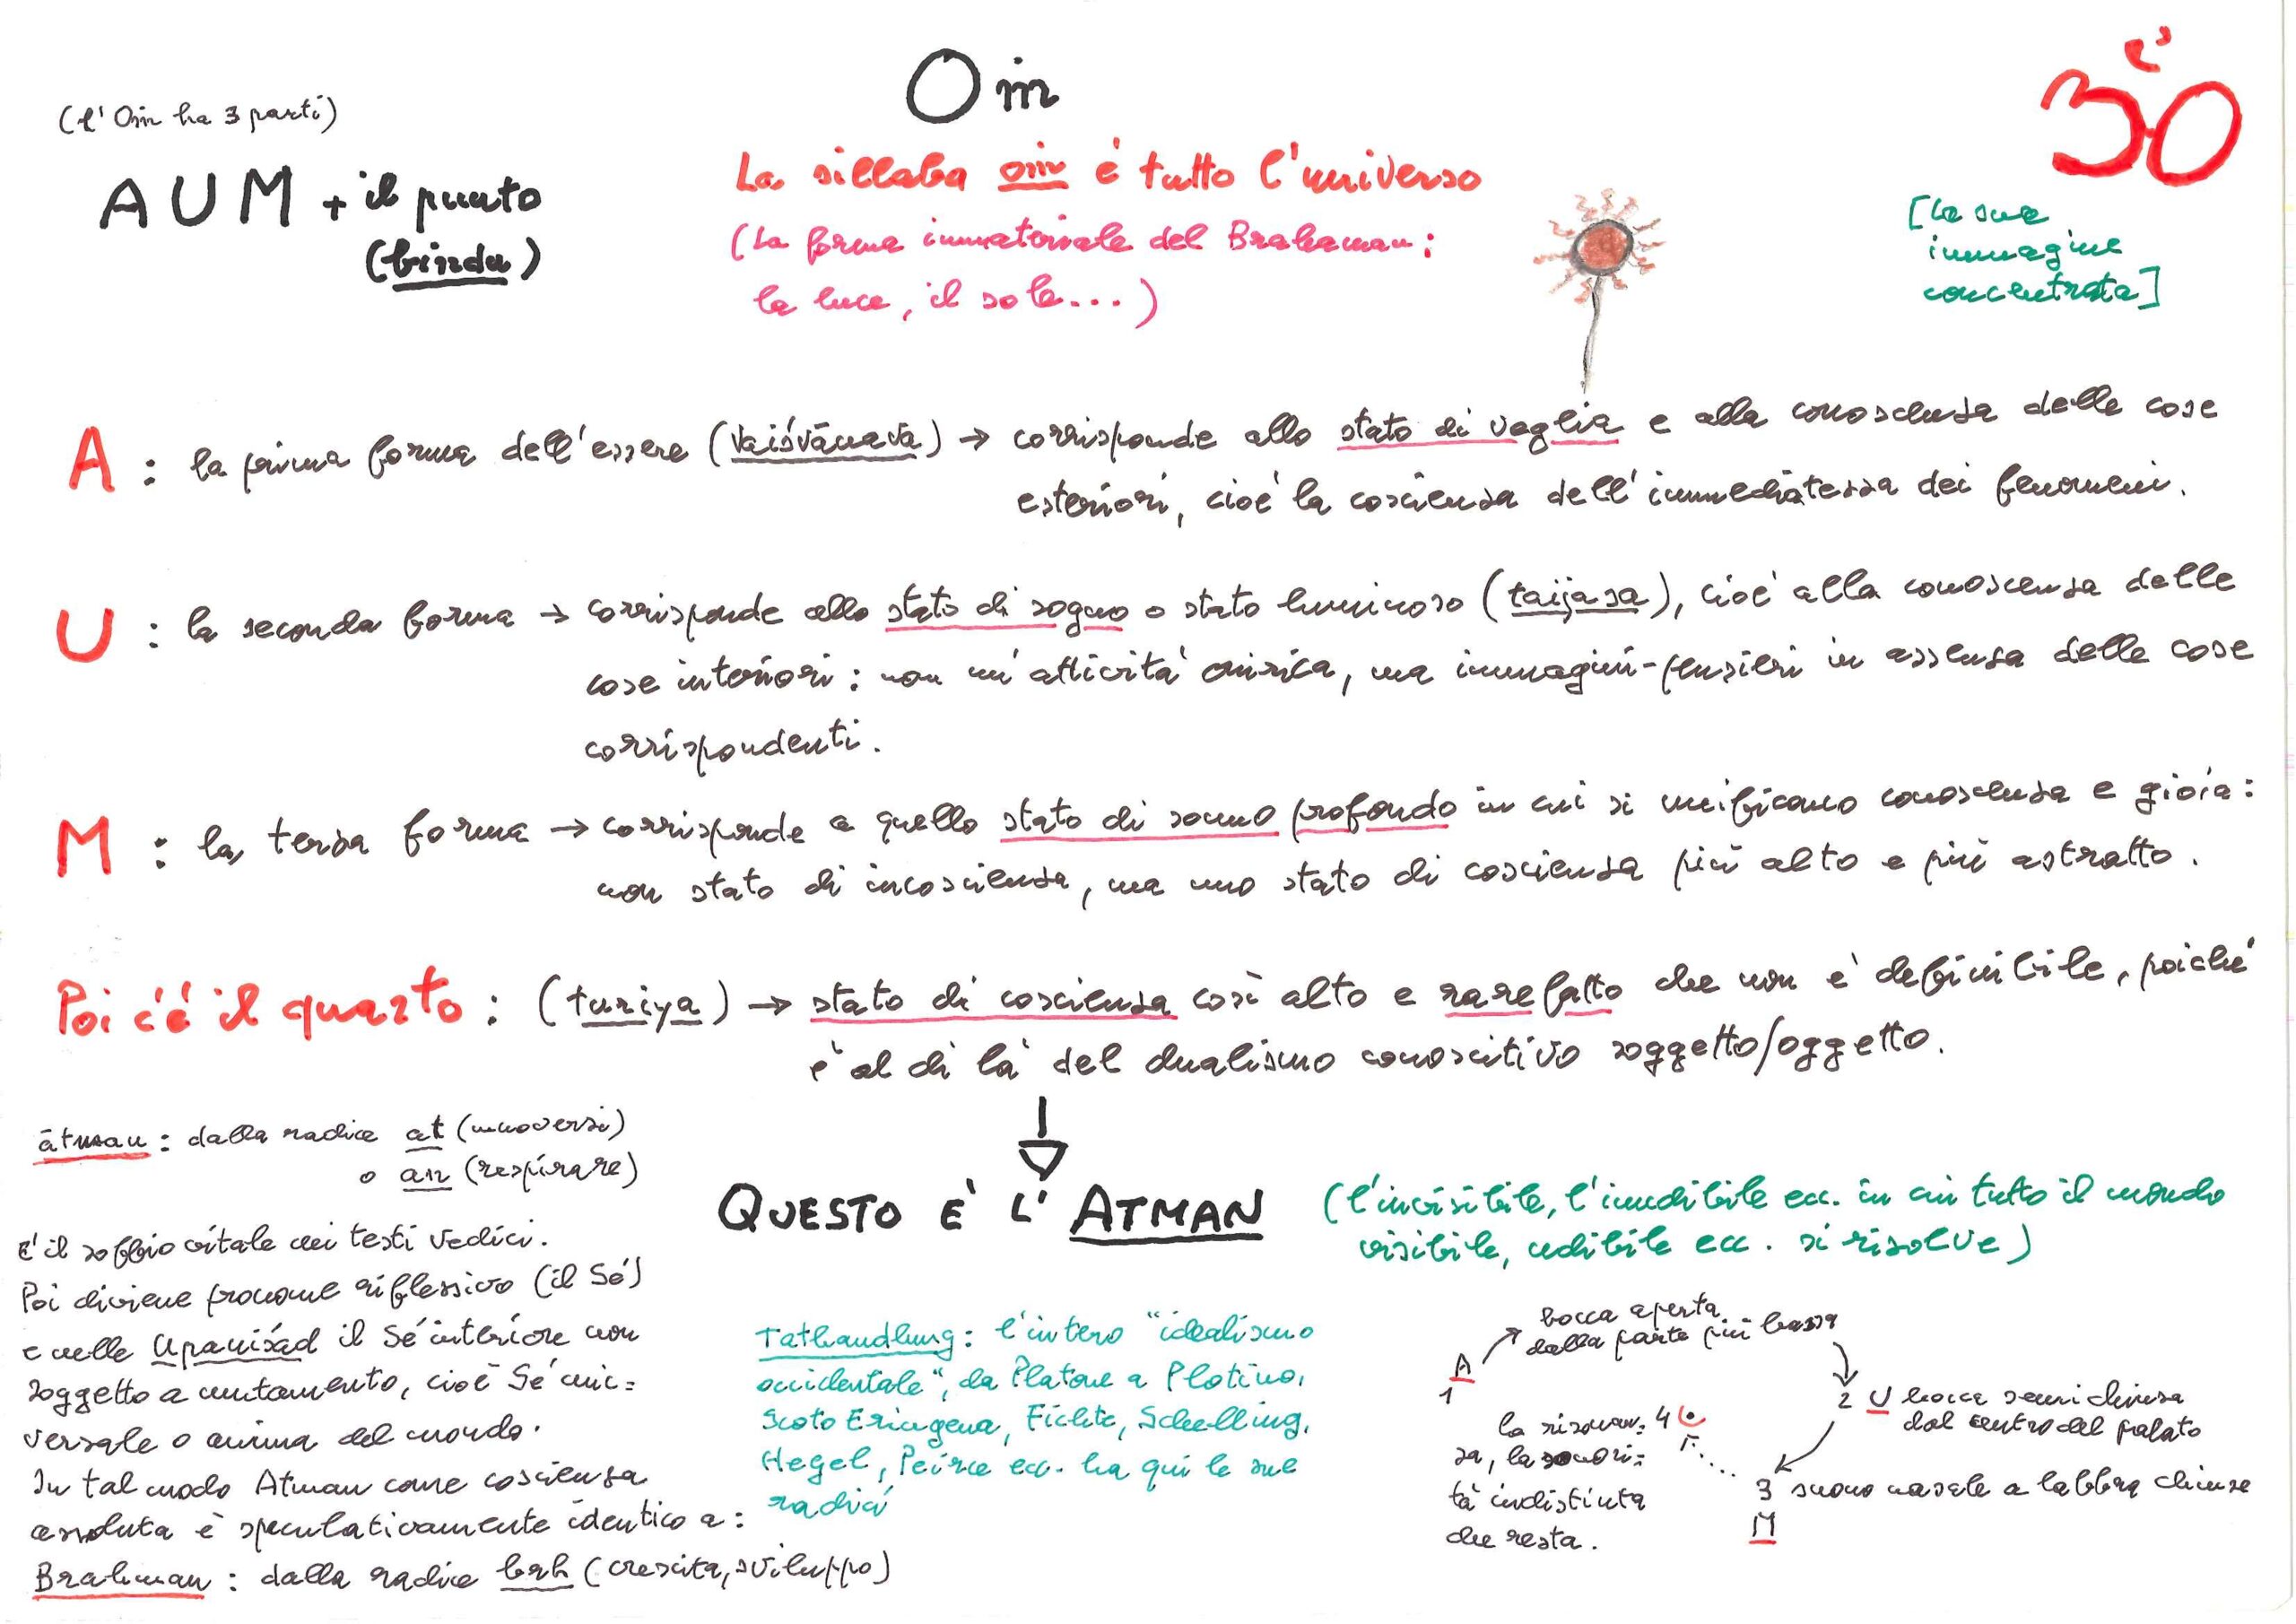 Oṁ
(l'Oṁ ha 3 parti)
AUM + il punto
(bindu)
La sillaba oṁ è tutto l'universo
(La forma immateriale del Brahaman:
la luce, il sole...)
[la sua
immagine
concentrata]
A : la prima forma dell'essere (vaiśvānava) → corrisponde allo stato di veglia e alla conoscenza delle cose
esteriori, cioè la coscienza dell'immediatezza dei fenomeni.
U : la seconda forma → corrisponde allo stato di sogno o stato luminoso (taijasa), cioè alla conoscenza delle
cose interiori : non un'attività onirica, ma immagini-pensieri in assenza delle cose
corrispondenti.
M : la terza forma → corrisponde a quello stato di sonno profondo in cui si unificano conoscenza e gioia :
non stato di incoscienza, ma uno stato di coscienza più alto e più astratto.
Poi c'è il quarto : (turiya) → stato di coscienza così alto e rarefatto che non è definibile, poiché
è al di là del dualismo conoscitivo soggetto/oggetto.
QUESTO È L'ATMAN
(l'invisibile, l'inudibile ecc. in cui tutto il mondo
visibile, udibile ecc. si risolve)
ātman : dalla radice at (muoversi)
o an (respirare)
E' il soffio vitale nei testi vedici.
Poi diviene pronome riflessivo (il Sé)
e nelle Upaniśad il Sé interiore non
soggetto a mutamento, cioè Sé uni=
versale o anima del mondo.
In tal modo Atman come coscienza
assoluta è speculativamente identico a :
Brahman : dalla radice brh (crescita, sviluppo)
Tathandlung : l'intero "idealismo
occidentale", da Platone a Plotino,
Scoto Eriugena, Fichte, Schelling,
Hegel, Peirce ecc. ha qui le sue
radici
A
1
bocca aperta
dalla parte più bassa
2 U bocca semichiusa
dal centro del palato
3 suono nasale a labbra chiuse
M
la risonan= 4
za, la sonori=
tà indistinta
che resta.